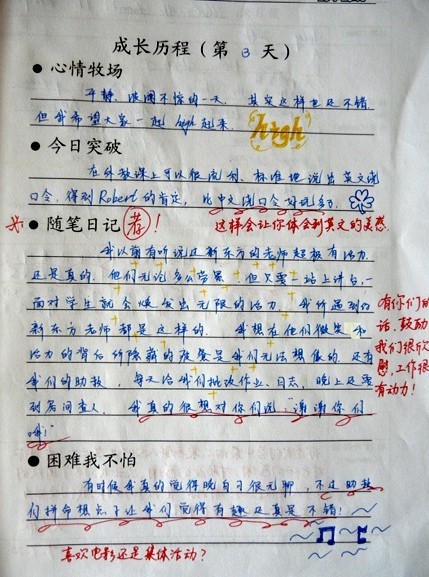 成长历程（第 3 天）
● 心情牧场
平静、波澜不惊的一天. 其实这样也还不错.
但我希望大家一起 high 起来.
high
● 今日突破
在外教课上可以很流利、标准地说出英文绕
口令, 得到 Robert 的肯定, 比中文绕口令好玩多了.
● 随笔日记 荐!
这样会让你体会到英文的美感
我以前有听说过新东方的老师超极有活力.
还是真的. 他们无论多么劳累, 但只要一站上讲台, 一
面对学生就会焕发出无限的活力. 我所遇到的
新东方老师都是这样的. 我想在他们微笑和
活力的背后所隐藏的疲惫是我们无法想像的. 还有
我们的助教, 每天给我们批改作业、日志, 晚上还要
到房间查人. 我真的很想对你们说:"谢谢你们
哦!"
有你们的
话, 鼓励
我们很欣
慰, 工作很
有动力!
● 困难我不怕
有时候我真的觉得晚自习很无聊, 不过助教
们拼命想点子让我们觉得有趣还真是不错!
喜欢电影还是集体活动?